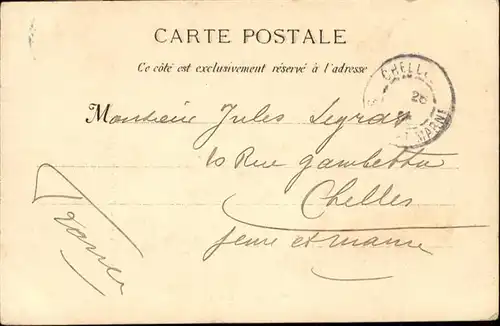 CARTE POSTALE
Ce côté est exclusivement réservé à l'adresse
CHELLES
28
MARNE
Monsieur Jules Legras
10 Rue Gambetta
Chelles
Seine et Marne
France